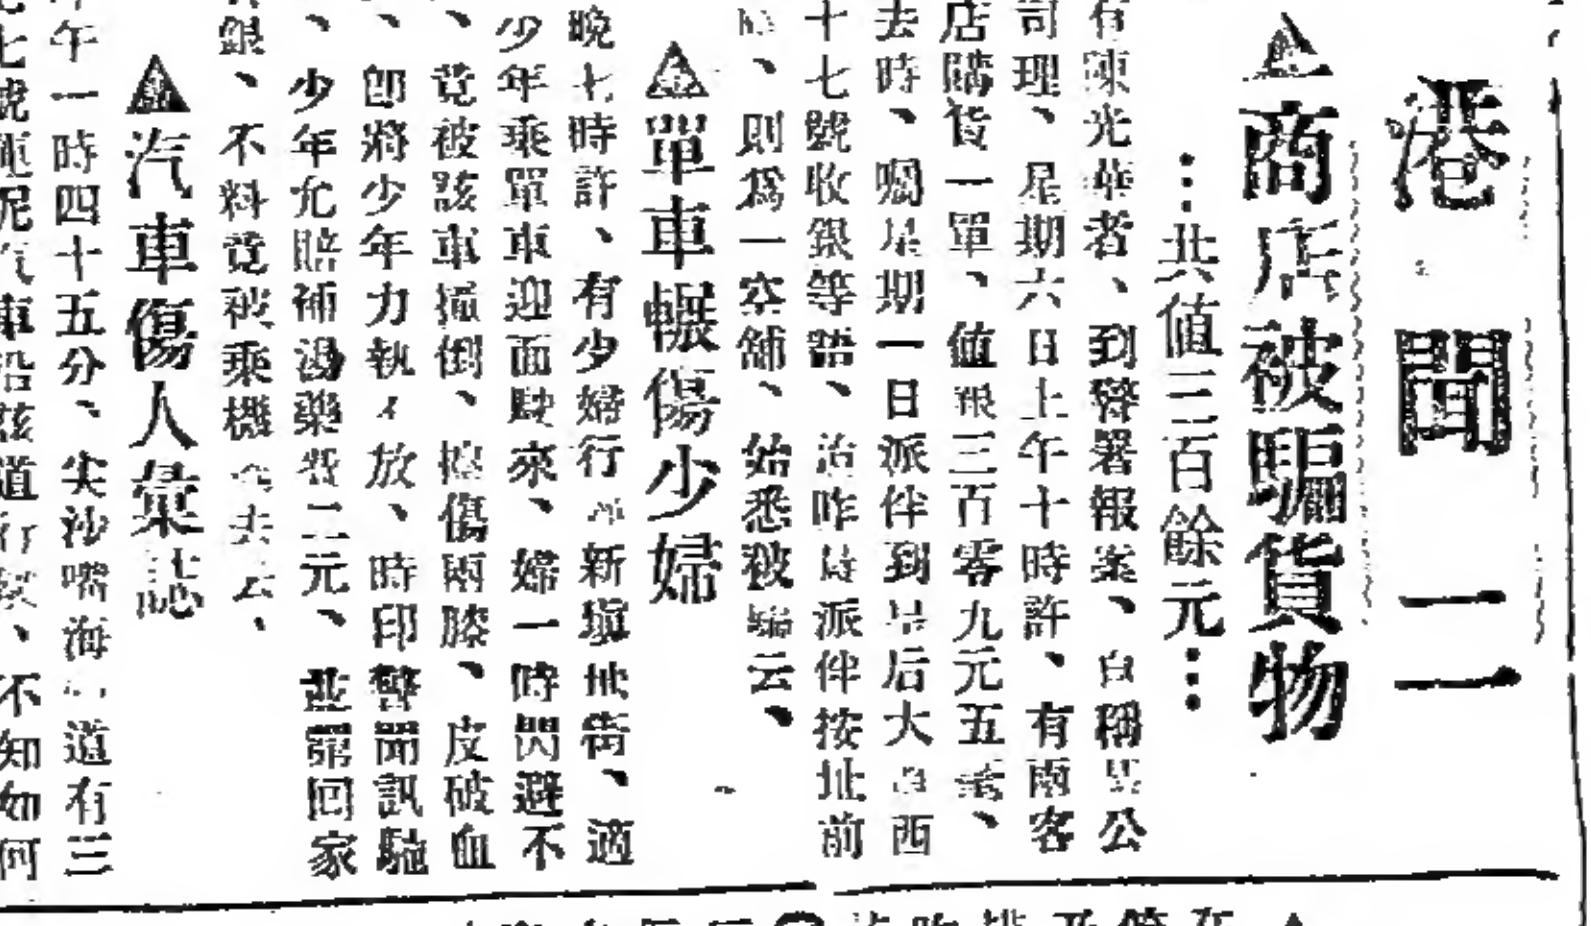 港聞二
商店被騙貨物
…共値三百餘元…
有陳光華者、到警署報案、自稱某公
司理、星期六日上午十時許、有兩客
店購貨一單、値銀三百零九元五毫、
去時、嘱星期一日派伴到皇后大道西
十七號收銀等語、治昨晨派伴按址前
、則爲一空舖、始悉被騙云、
單車輾傷少婦
晚七時許、有少婦行 新塡地街、適
少年乘單車迎面駛來、婦一時閃避不
、竟被該車撞倒、擦傷兩膝、皮破血
、卽將少年力執 放、時印警聞訊馳
、少年允賠補湯藥費二元、並帶回家
銀、不料竟被乘機 去云、
汽車傷人彙誌
午一時四十五分、尖沙嘴海 道有三
七號 泥汽車沿該道行駛、不知如何